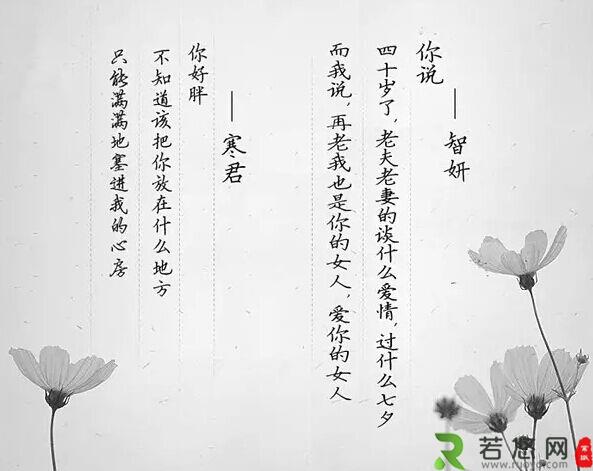 你说
——智妍
四十岁了，老夫老妻的谈什么爱情，过什么七夕
而我说，再老我也是你的女人，爱你的女人
——寒君
你好胖
不知道该把你放在什么地方
只能满满地塞进我的心房
若悠网
www.ruoyo.com